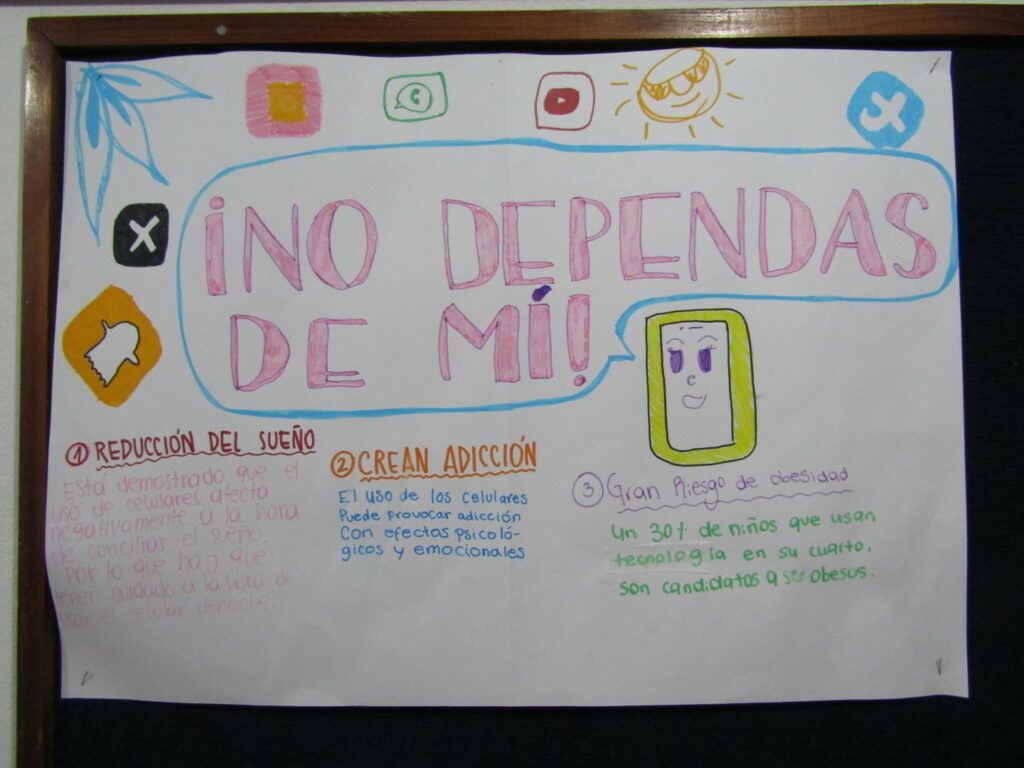 X
¡NO DEPENDAS
DE MÍ!
① REDUCCIÓN DEL SUEÑO
Está demostrado que el
uso de celulares afecta
negativamente a la hora
de conciliar el sueño.
Por lo que hay que
tener cuidado a la hora de
usar el celular denoche.
② CREAN ADICCIÓN
El uso de los celulares
Puede Provocar adicción
Con efectos Psicoló-
gicos y emocionales
③ Gran Riesgo de obesidad
Un 30% de niños que usan
tecnología en su cuarto,
son candidatos a ser obesos.